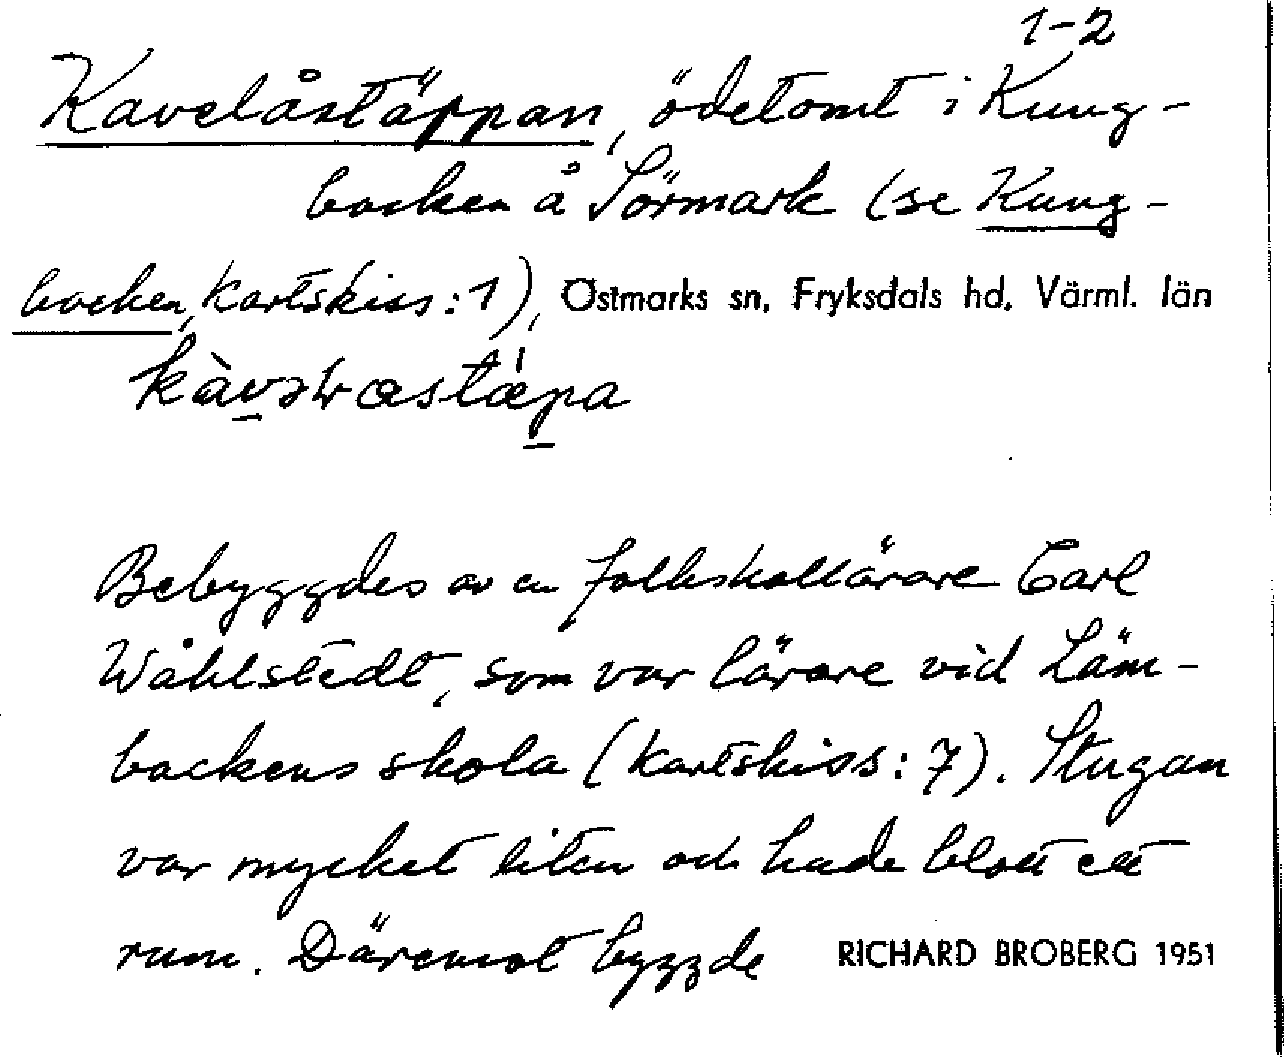 1-2
Kavelåstäppan, ödetomt i Kung-
backen å Sörmark (se Kung-
backen, kartskiss: 1), Östmarks sn, Fryksdals hd, Värml. län
Bebyggdes av en folkskollärare Carl
Wåhlstedt, som var lärare vid Läm-
backens skola (kartskiss: 7). Stugan
var mycket liten och hade blott ett
rum. Däremot byggde RICHARD BROBERG 1951